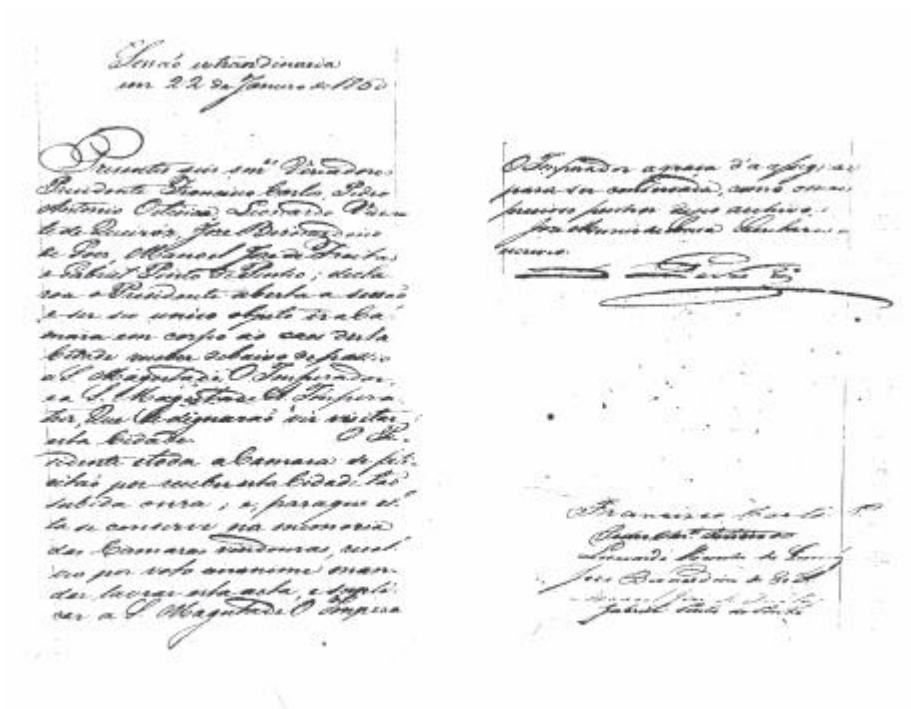 Sessaõ extraordinaria
em 22 de Janeiro de 1860
Presentes seis Snr.es Vereadores
Presidente Francisco Carlos, Pedro
Antonio, Leonardo Vicen
te de Queiroz, José Bernardino
de, Manoel José de Freitas
e Gabriel Pinto; decla
rou o Presidente aberta a sessaõ
e ser seo unico objeto ir a Ca
mara em corpo ao caes desta
Cidade receber debaixo de palio
a S. Magestade O Imperador,
e a S. Magestade A Impera
triz, Que Se dignaraõ vir visitar
esta Cidade. O Pre
sidente e toda a Camara se feli
citaõ por receber esta Cidade taõ
subida onra; e, para que es
ta se conserve na memoria
das Camaras vindouras, resol
veo por voto unanime man
dar lavrar esta acta, e supli
car a S. Magestade O Impera
O Imperador a graça d'a assignar
para ser conservada, como
precioso penhor de seo archivo.
José
escrevi.
Pedro 2º
Francisco Carlos
Leonardo Vicente de Queiroz
José Bernardino de
Manoel José de Freitas
Gabriel Pinto